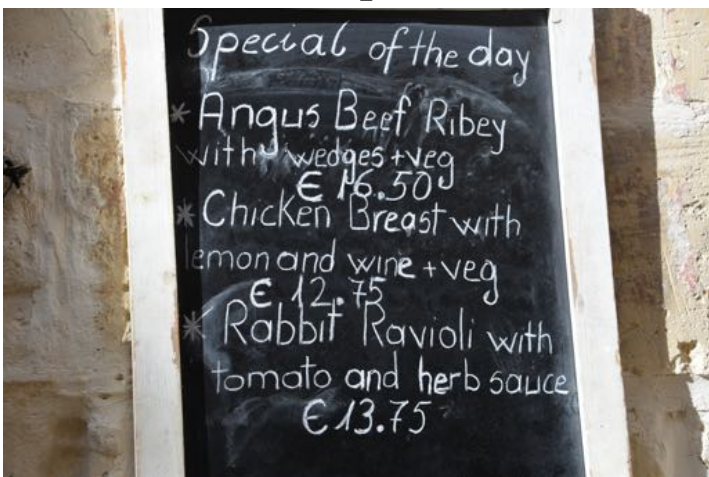 Special of the day
* Angus Beef Ribey
with wedges + veg
€ 16.50
* Chicken Breast with
lemon and wine + veg
€ 12.75
* Rabbit Ravioli with
tomato and herb sauce
€ 13.75